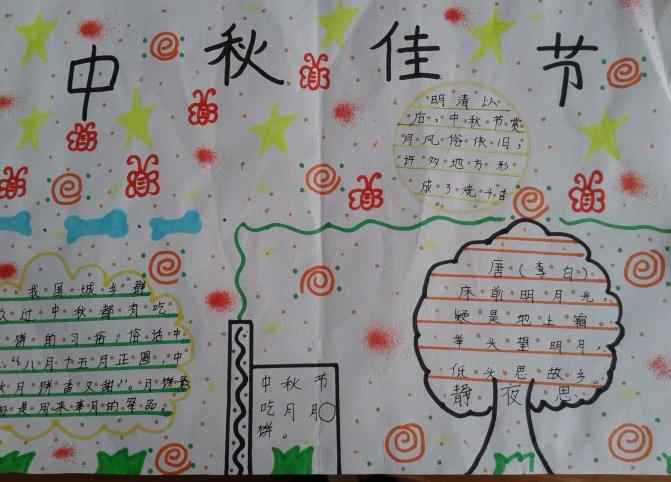 中秋佳节
明清以
后，中秋节赏
月风俗依旧；
许多地方形
成了烧斗香
。
我国城乡群
众过中秋都有吃
饼的习俗，俗话中
：“八月十五月正圆，中
秋月饼香又甜”。月饼最
是用来奉月的祭品。
中秋节
吃月月
饼。
唐（李白）
床前明月光，
疑是地上霜。
举头望明月，
低头思故乡。
静夜思